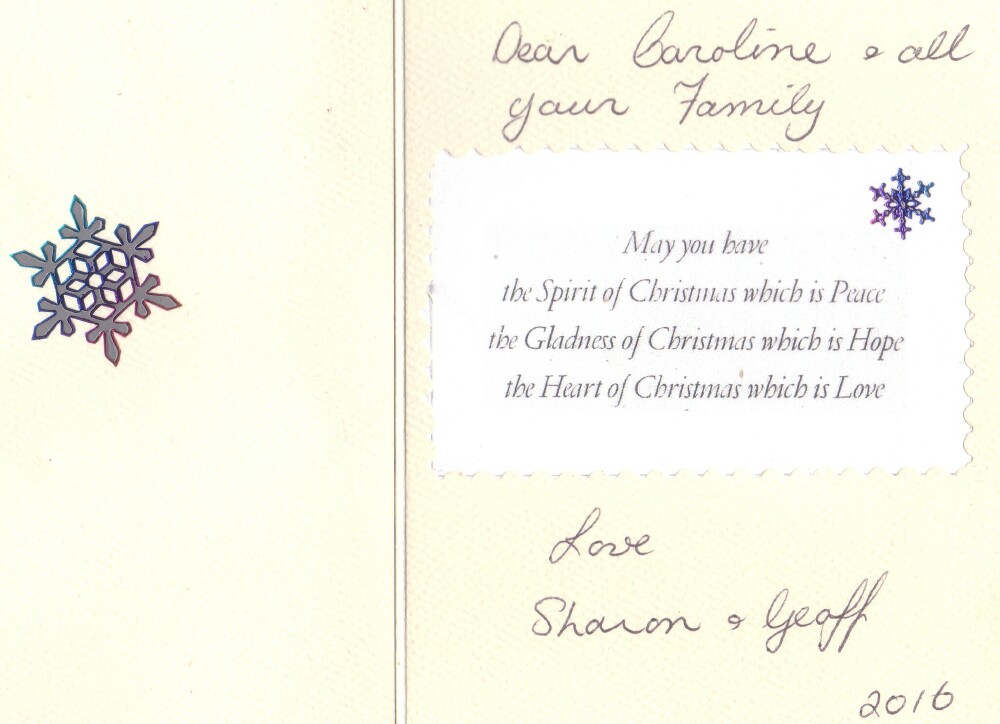 Dear Caroline & all
your Family
May you have
the Spirit of Christmas which is Peace
the Gladness of Christmas which is Hope
the Heart of Christmas which is Love
Love
Sharon & Geoff
2016